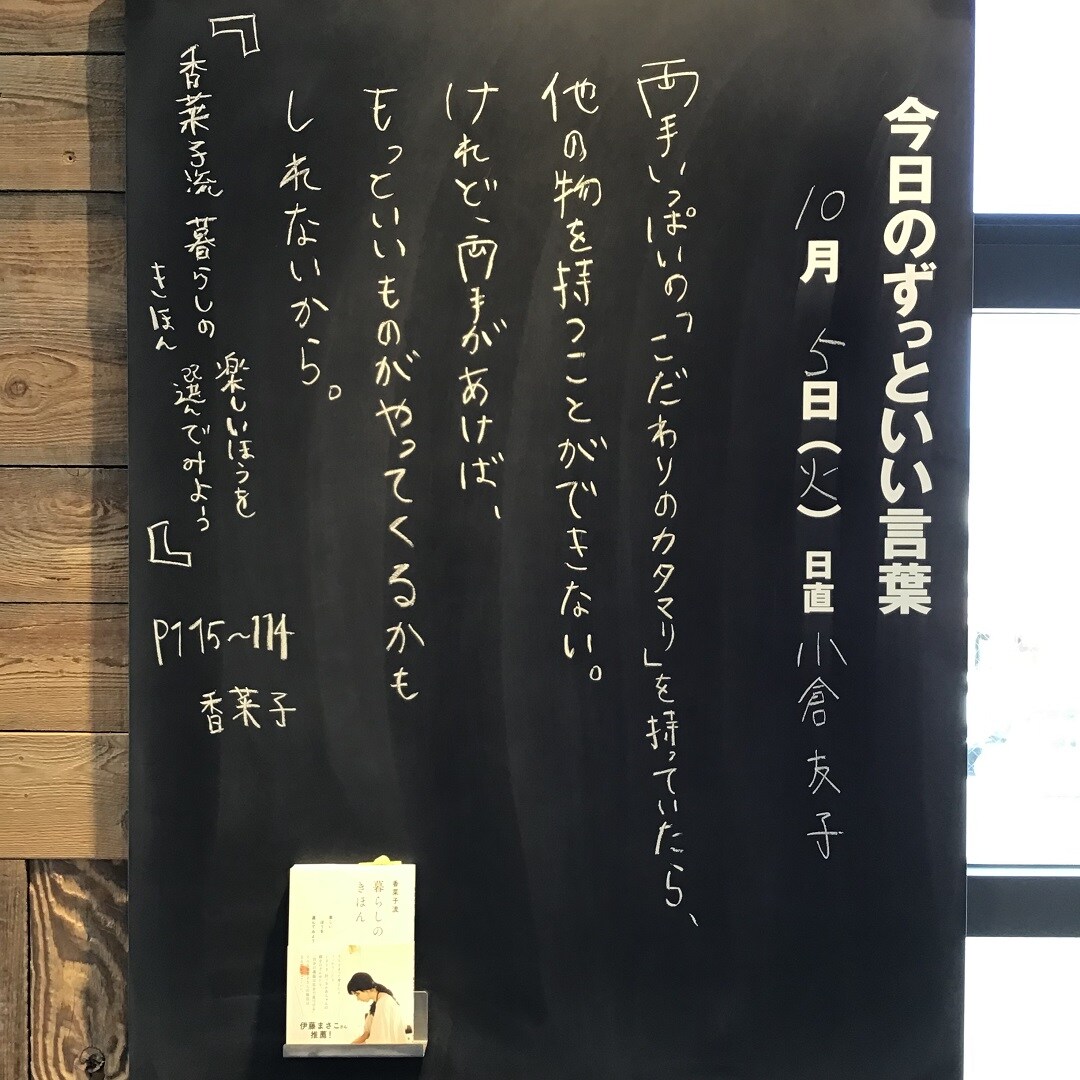 今日のずっといい言葉
10月5日(火)日直 小倉友子
両手いっぱいの「こだわりのカタマリ」を持っていたら、
他の物を持つことができない。
けれど、両手があけば、
もっといいものがやってくるかも
しれないから。
『香菜子流 暮らしの
きほん
楽しいほうを
選んでみよう』
P115~114
香菜子
香菜子流
暮らしの
きほん
伊藤まさこさん
推薦!